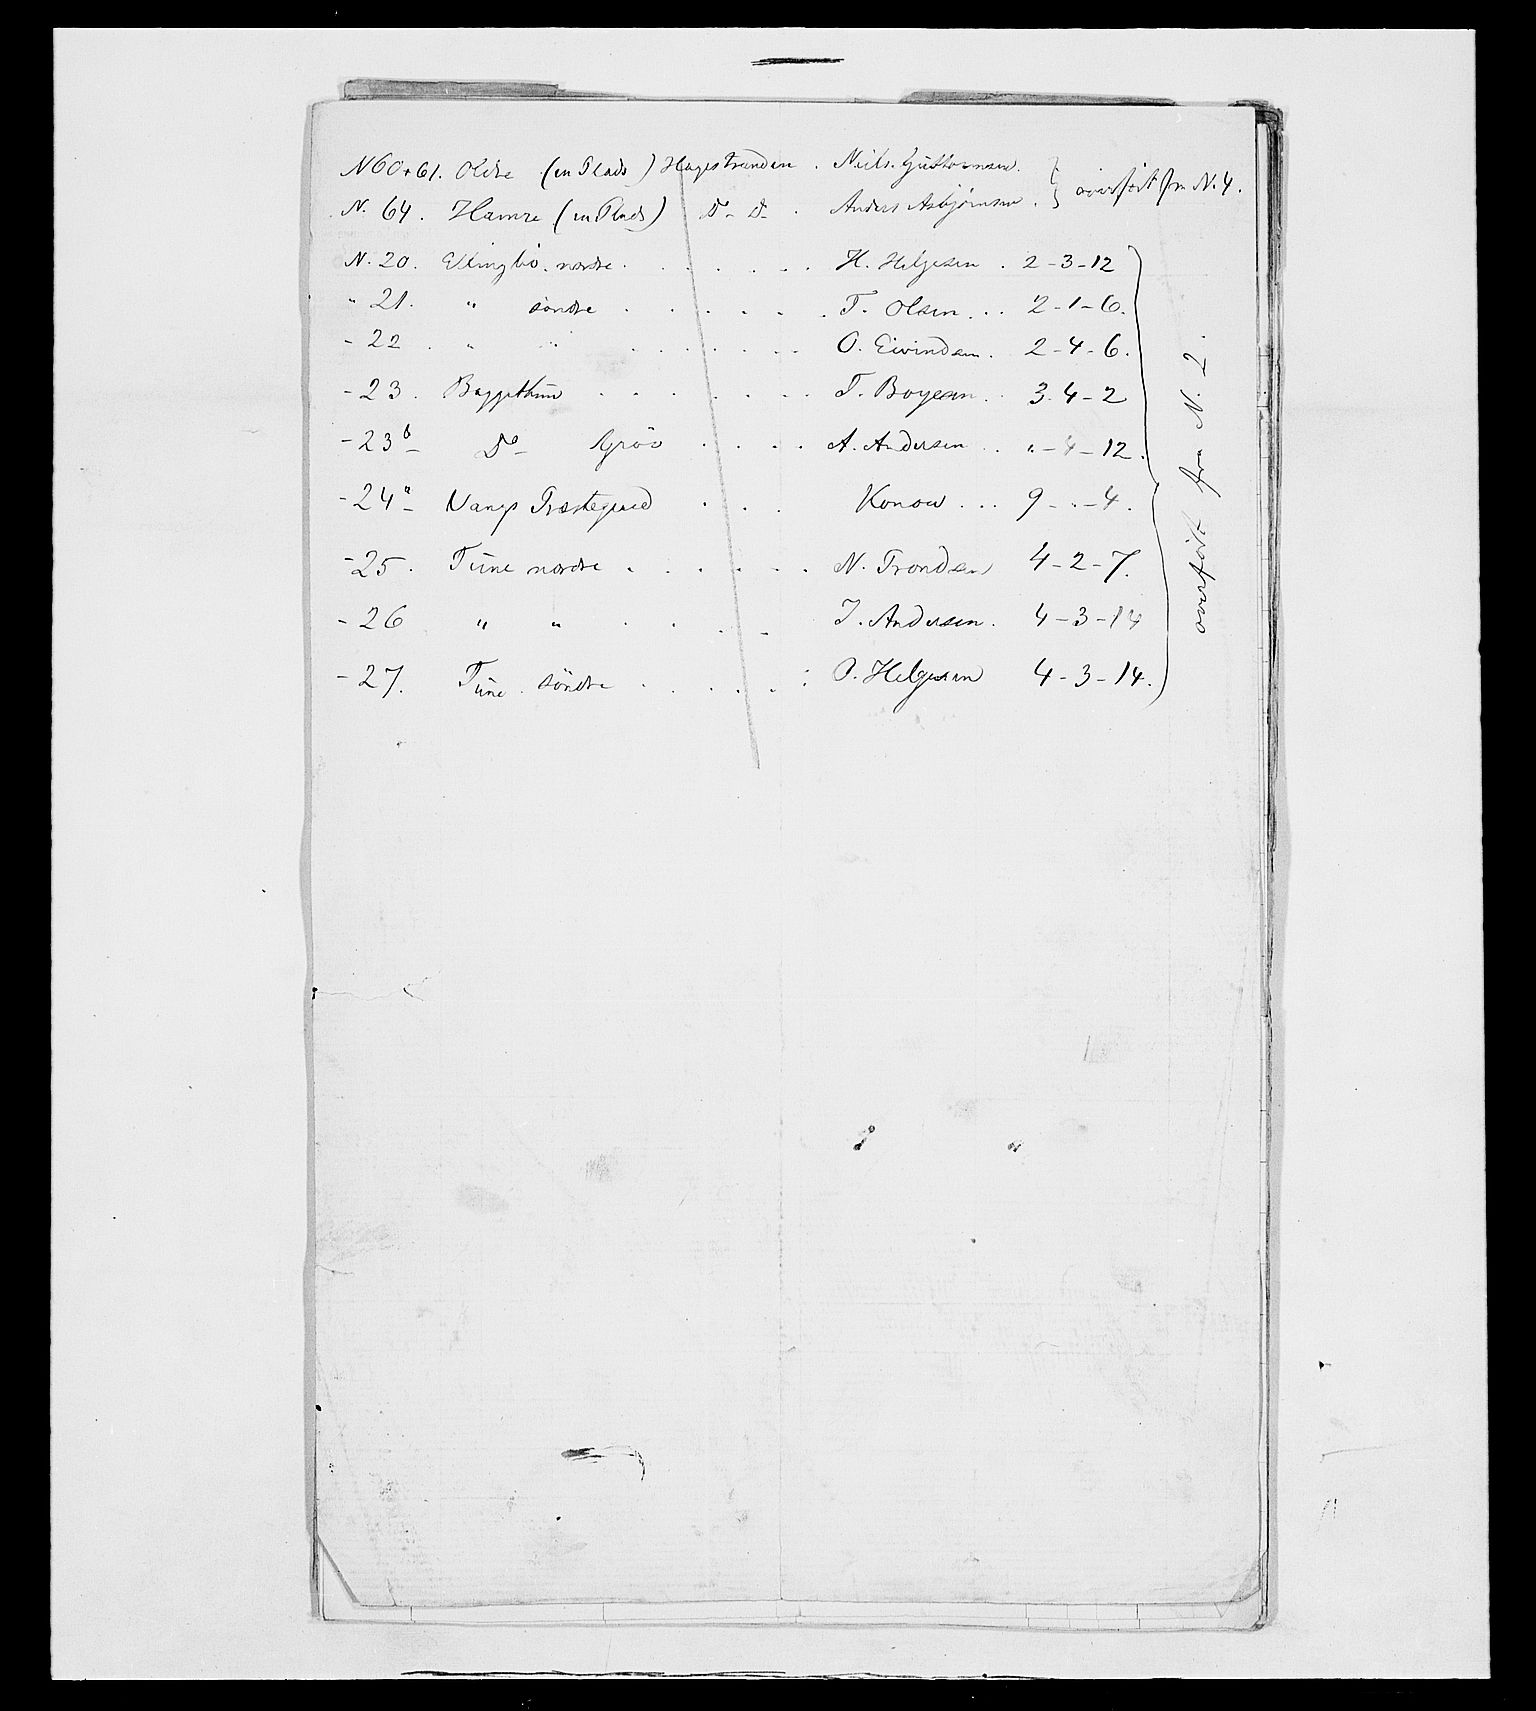 N 60 + 61. Oldre (en Plads) Hagestranden . Niels Guttormsen.
N. 64. Hamre (en Plads) Do Do . Anders Asbjørnsen . } overført fra N. 4.
N. 20. Ellingbö. nordre . . . . . . H. Helgesen . 2-3-12
" 21. " söndre . . . . . . T. Olsen . . . 2-1-6.
- 22 . " " . . . . . . O. Eivindsen . 2-4-6.
- 23. Baggethun . . . . . . T. Boyesen . . 3-4-2
- 23b Do Gröv . . . . A. Andersen . . "-4-12.
- 24a Vangs Præstegaard . . . Konow . . . 9-"-4.
- 25. Tune nordre . . . . . . N. Trondsen 4-2-7.
- 26 " " . . . . J. Andersen . 4-3-14
- 27. Tune. söndre . . . . . . O. Helgesen 4-3-14.
overført fra N. 2.